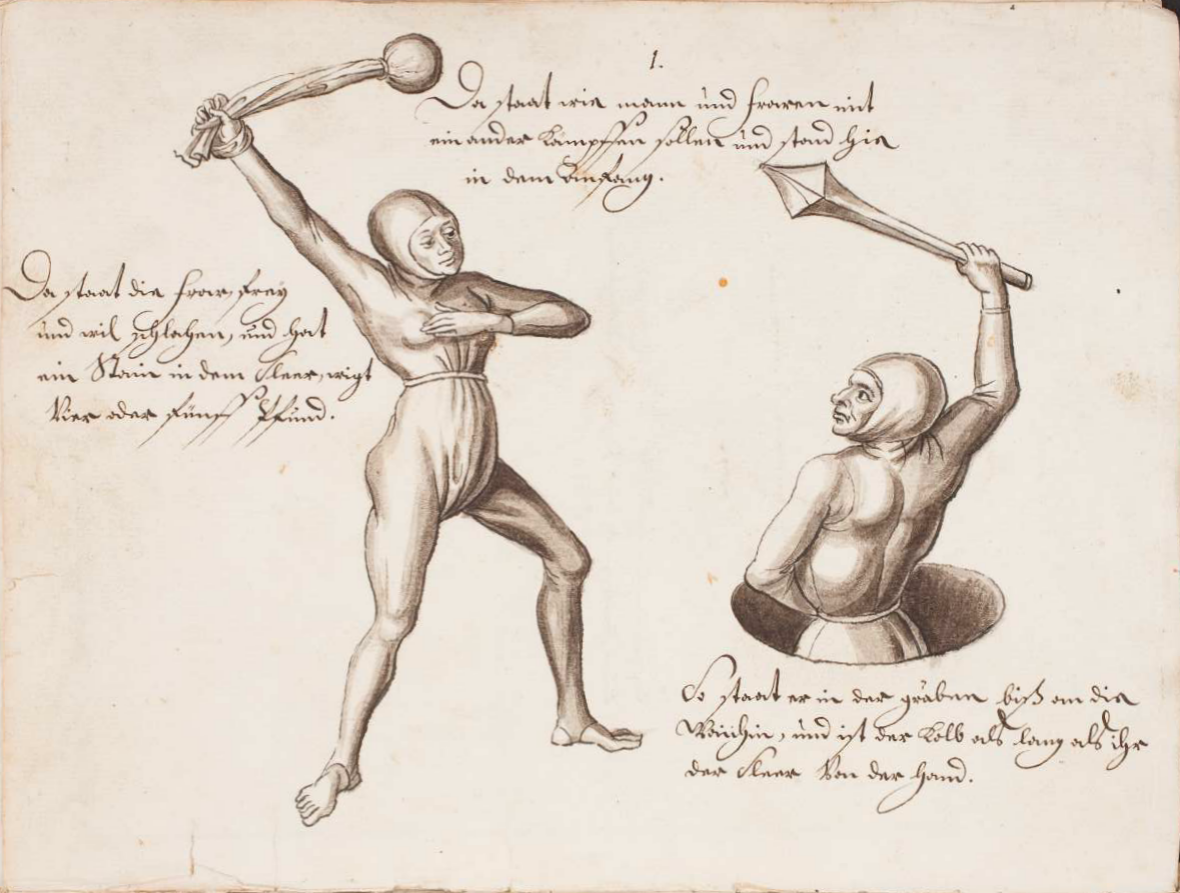 1.
Da staat wie mann und frawen mit
ein ander kämpffen söllen und stand hie
in dem Anfang.
Da staat die fraw frey
und wil schlahen, und hat
ein Stain in dem Sleer, wigt
Vier oder fünff Pfund.
So staat er in der gräben biß an die
Waichin, und ist der Kolb als lang als ihr
der Sleer Von der hand.